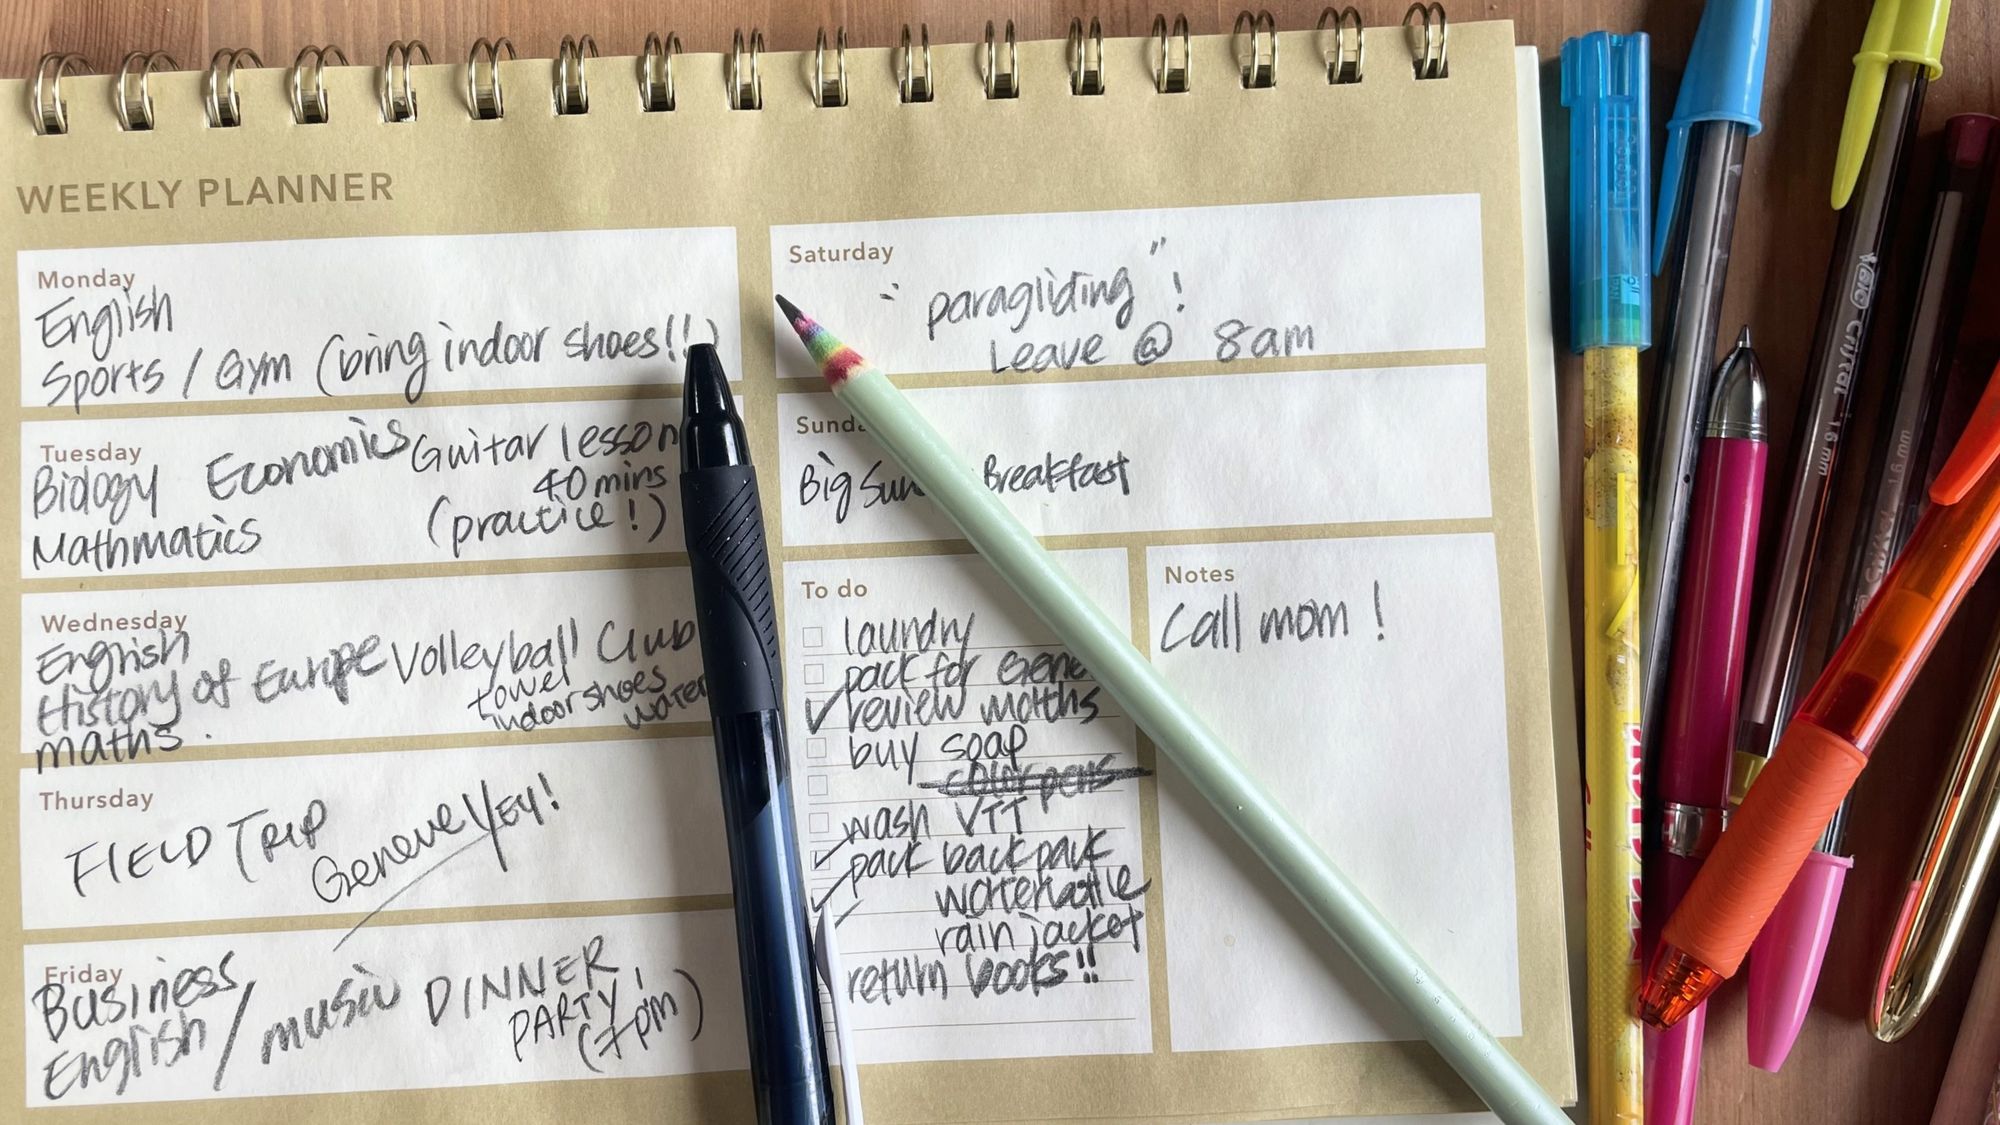 WEEKLY PLANNER
Monday
English
Sports / Gym (bring indoor shoes!!)
Tuesday
Biology Economics Guitar lesson
40 mins
Mathmatics (practice!)
Wednesday
English
History of Europe Volleyball Club
towel
indoor shoes
water
maths.
Thursday
FIELD TRIP
Geneve Yey!
Friday
Business
English / music DINNER
PARTY!
(7pm)
Saturday
"paragliding"!
Leave @ 8am
Sunda
Big Sun Breakfast
To do
laundry
pack for Gene
review maths
buy soap
color pens
wash VTT
pack backpack
waterbottle
rain jacket
return books!!
Notes
Call mom!
BIC Cristal 1.6mm